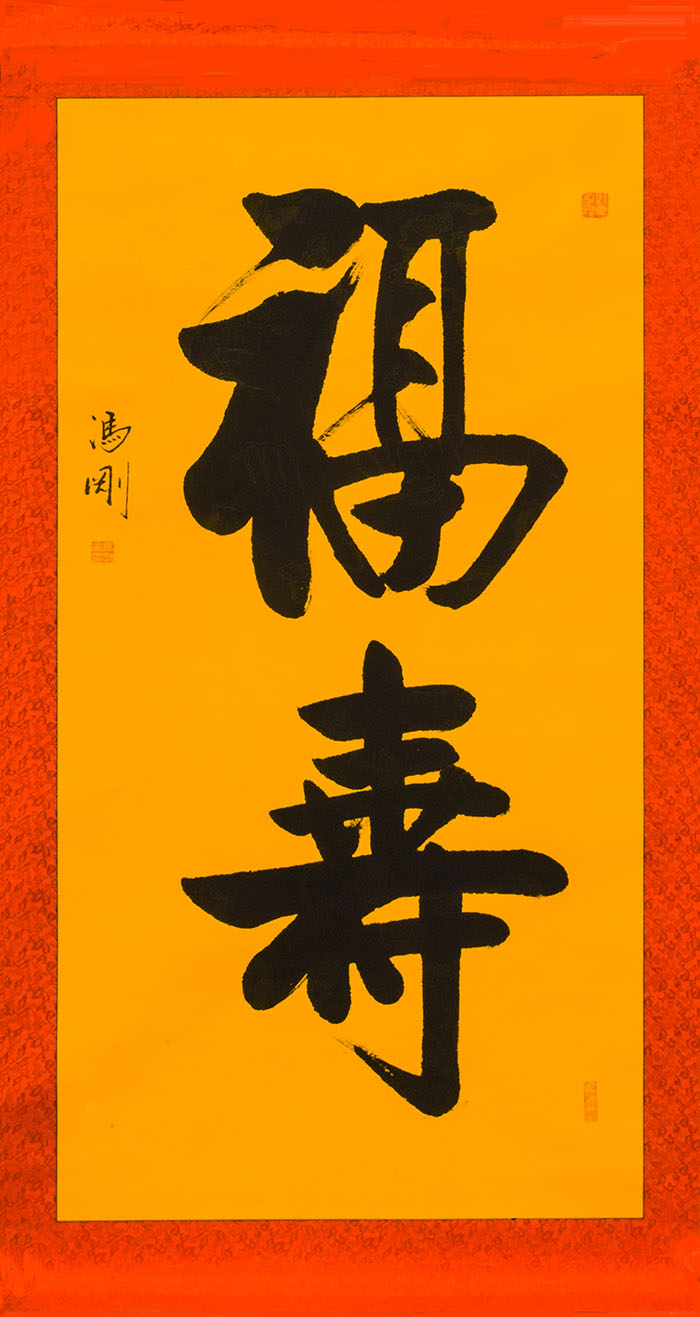 福壽
馮剛